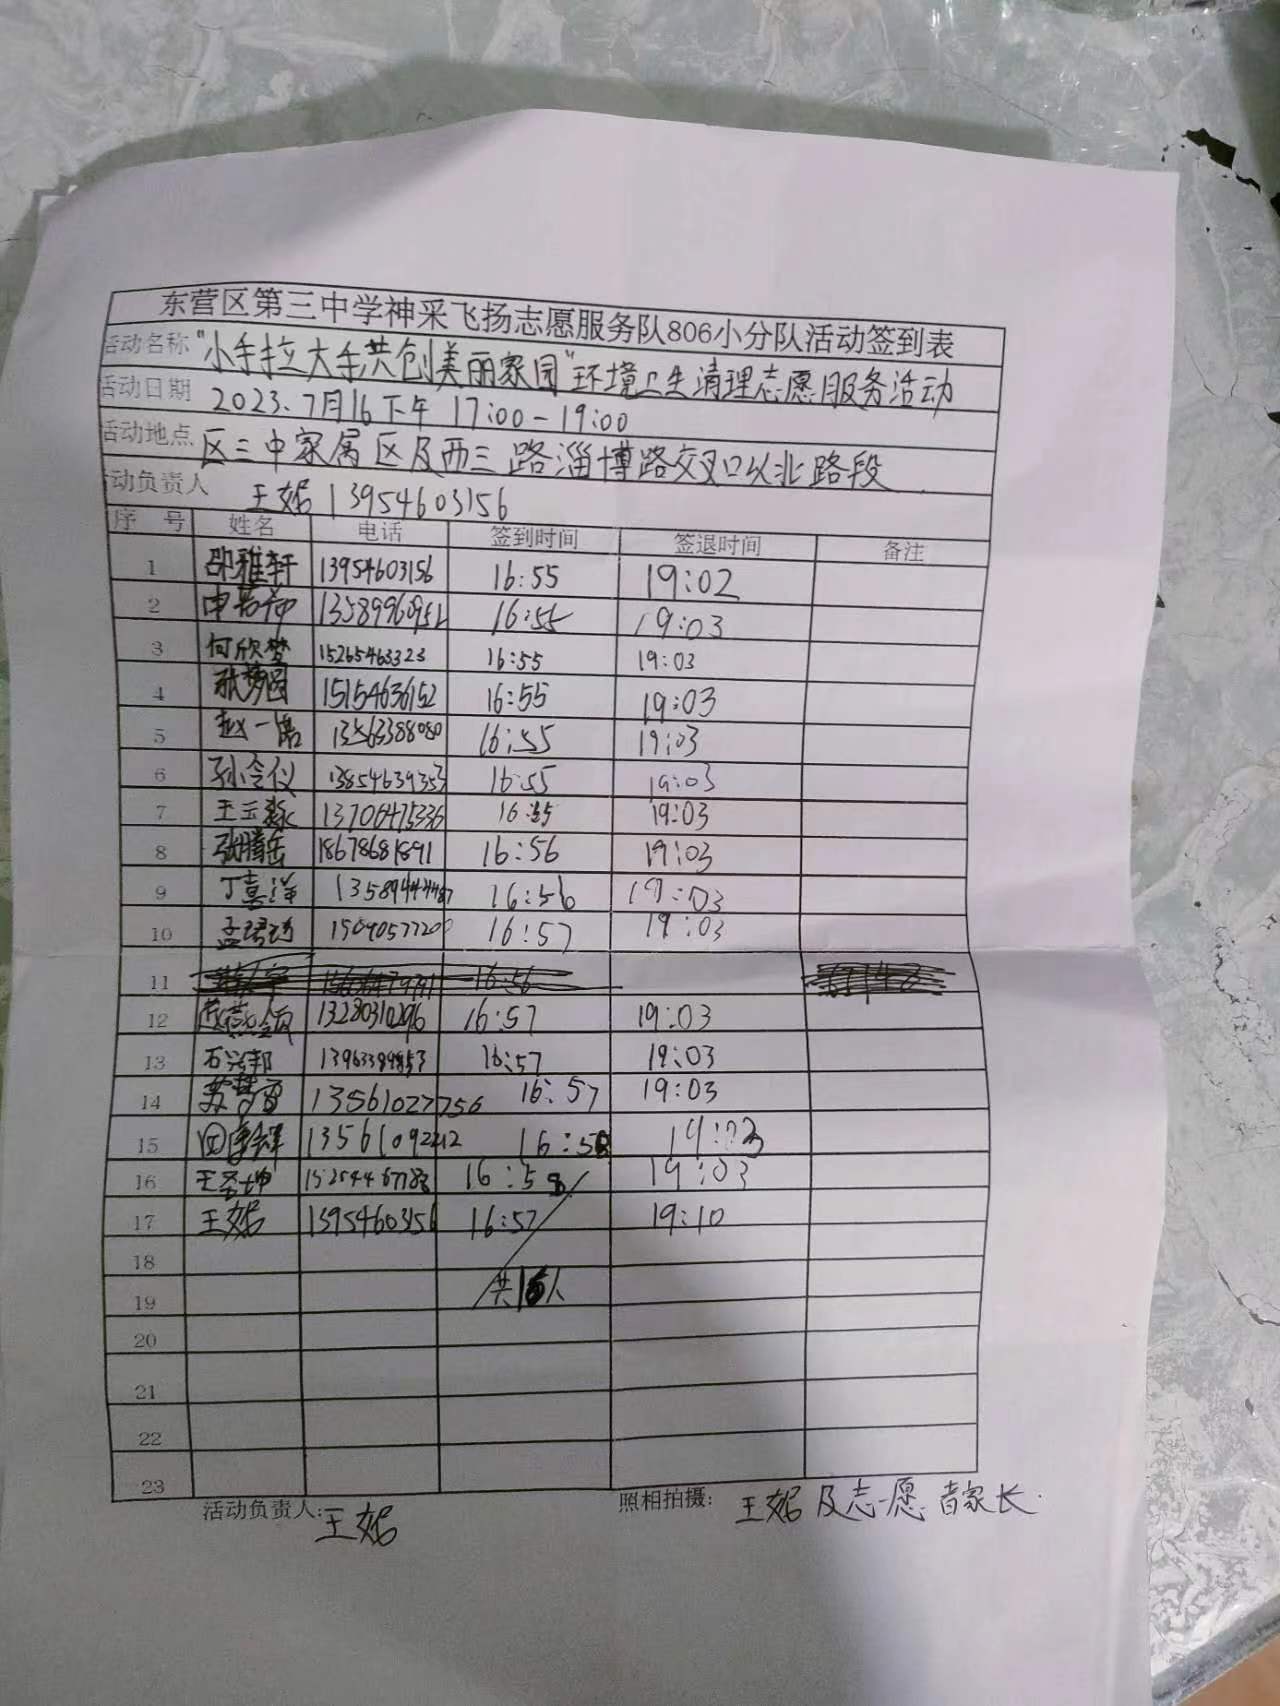 东营区第三中学神采飞扬志愿服务队806小分队活动签到表
活动名称 "小手拉大手共创美丽家园"环境卫生清理志愿服务活动
活动日期 2023.7月16下午 17:00-19:00
活动地点 区三中家属区及西三路淄博路交叉口以北路段
活动负责人 王妮 13954603156
序号 姓名 电话 签到时间 签退时间 备注
1 邵雅轩 13954603156 16:55 19:02
2 申若初 13589960951 16:55 19:03
3 何欣梦 15265463323 16:55 19:03
4 耿梦圆 15154636152 16:55 19:03
5 赵一诺 13563388080 16:55 19:03
6 孙令仪 13854639353 16:55 19:03
7 王玉淼 13706475336 16:55 19:03
8 张腾岳 18678681891 16:56 19:03
9 丁喜洋 13589444487 16:56 19:03
10 孟珺琦 16:57 19:03
11 16:56
12 13280310296 16:57 19:03
13 石兴邦 16:57 19:03
14 苏梦雪 13561027756 16:57 19:03
15 13561092212 16:58 19:03
16 王圣坤 16:58 19:03
17 王妮 13954603156 16:57 19:10
18
19 共16人
20
21
22
23
活动负责人: 王妮 照相拍摄: 王妮及志愿者家长.